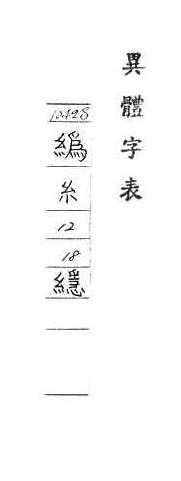 異體字表
10428
糸
12
18